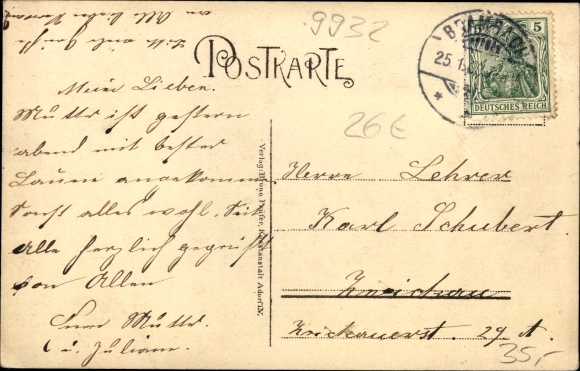 9932
POSTKARTE
BRAMBACH
25.1
5
DEUTSCHES REICH
26€
Mein Lieben.
Mutter ist gestern
abend mit bester
Laune angekommen
Sonst alles wohl. Seid
Alle herzlich gegrüßt
von Allen
Eure Mutter.
u. Juliane.
Verlag: Bruno Kunstanstalt Adorf i/V.
Herrn Lehrer
Karl Schubert.
Zwickau
Zwickauerst. 29
35,-